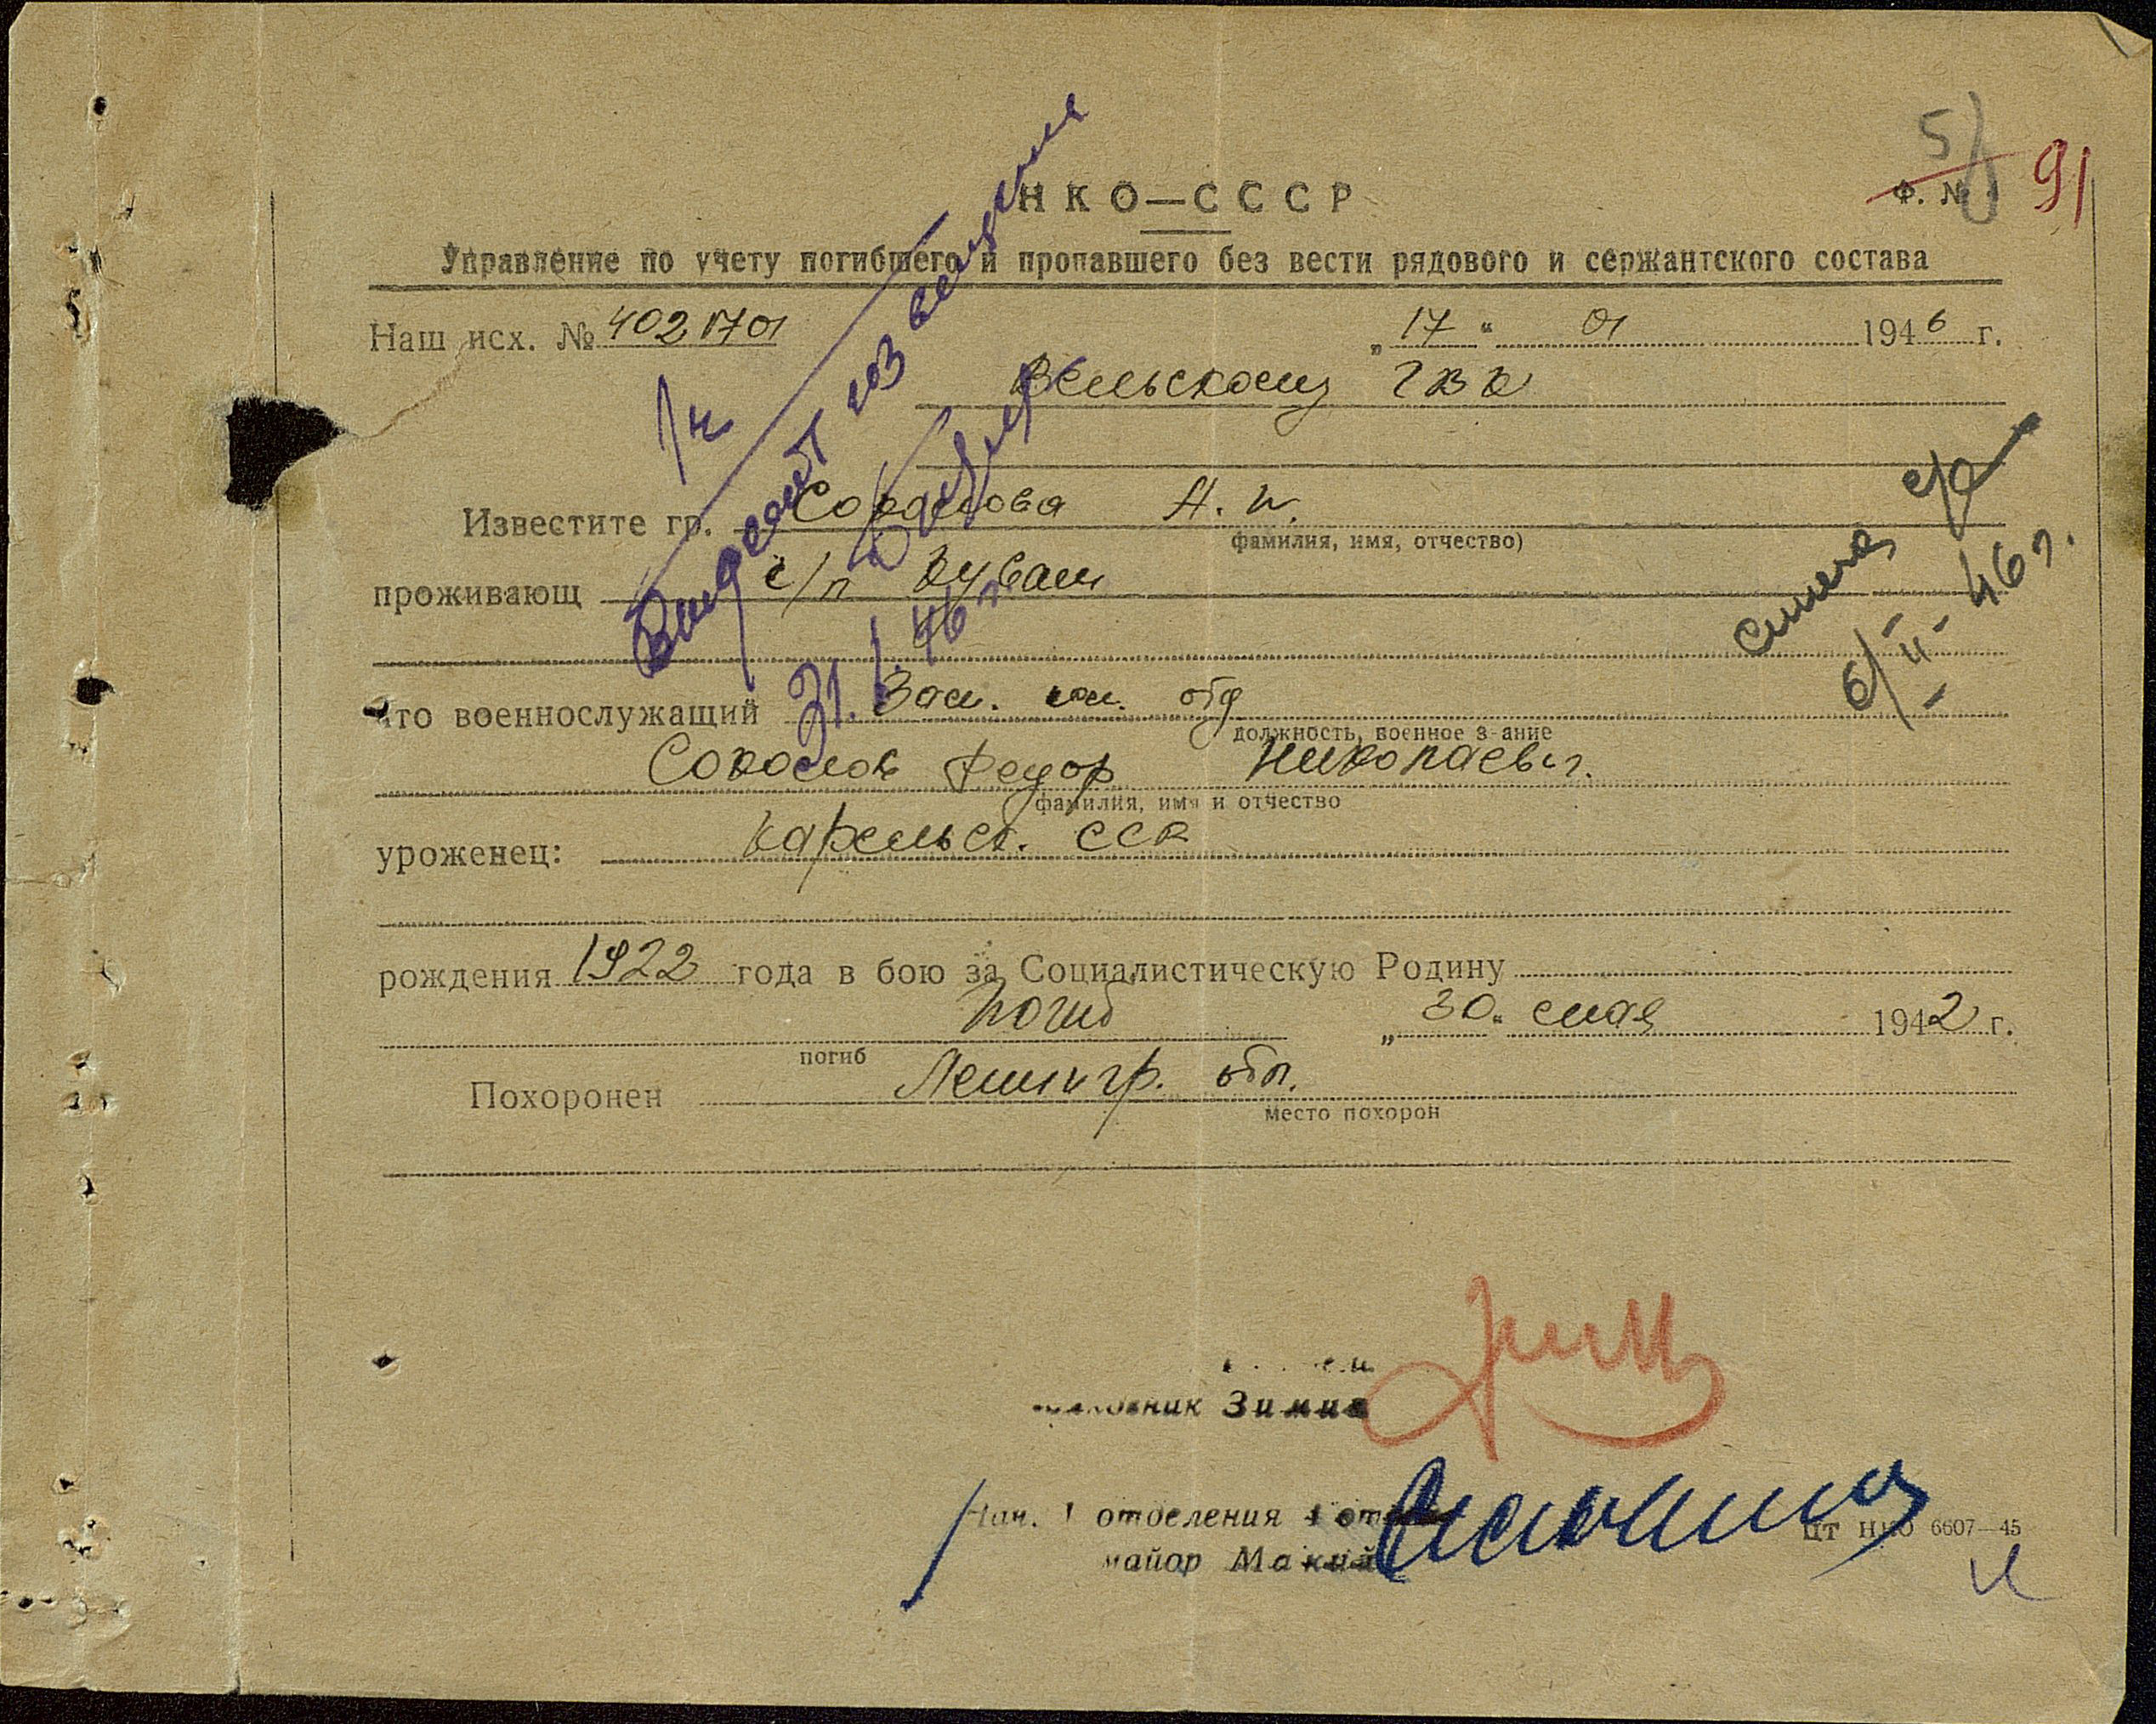 5
Ф. № 1
91
НКО—СССР
Управление по учету погибшего и пропавшего без вести рядового и сержантского состава
Наш исх. № 4021701 „17“ 01 1946 г.
Вельскому ГВК
Известите гр. Соколова А. И.
фамилия, имя, отчество)
проживающ с/п Куваш
что военнослужащий Зам. ком. отд
должность, военное звание
Соколов Федор Николаевич.
фамилия, имя и отчество
уроженец: Карельск. ССР
рождения 1922 года в бою за Социалистическую Родину
погиб „30“ мая 1942 г.
погиб
Похоронен Ленингр. обл.
место похорон
1ч
Выдают извещение
31.1.46 г.
6/II-46 г.
Зимин
Нач. 1 отделения 1 отд
майор Макий
ЦТ НКО 6607—45